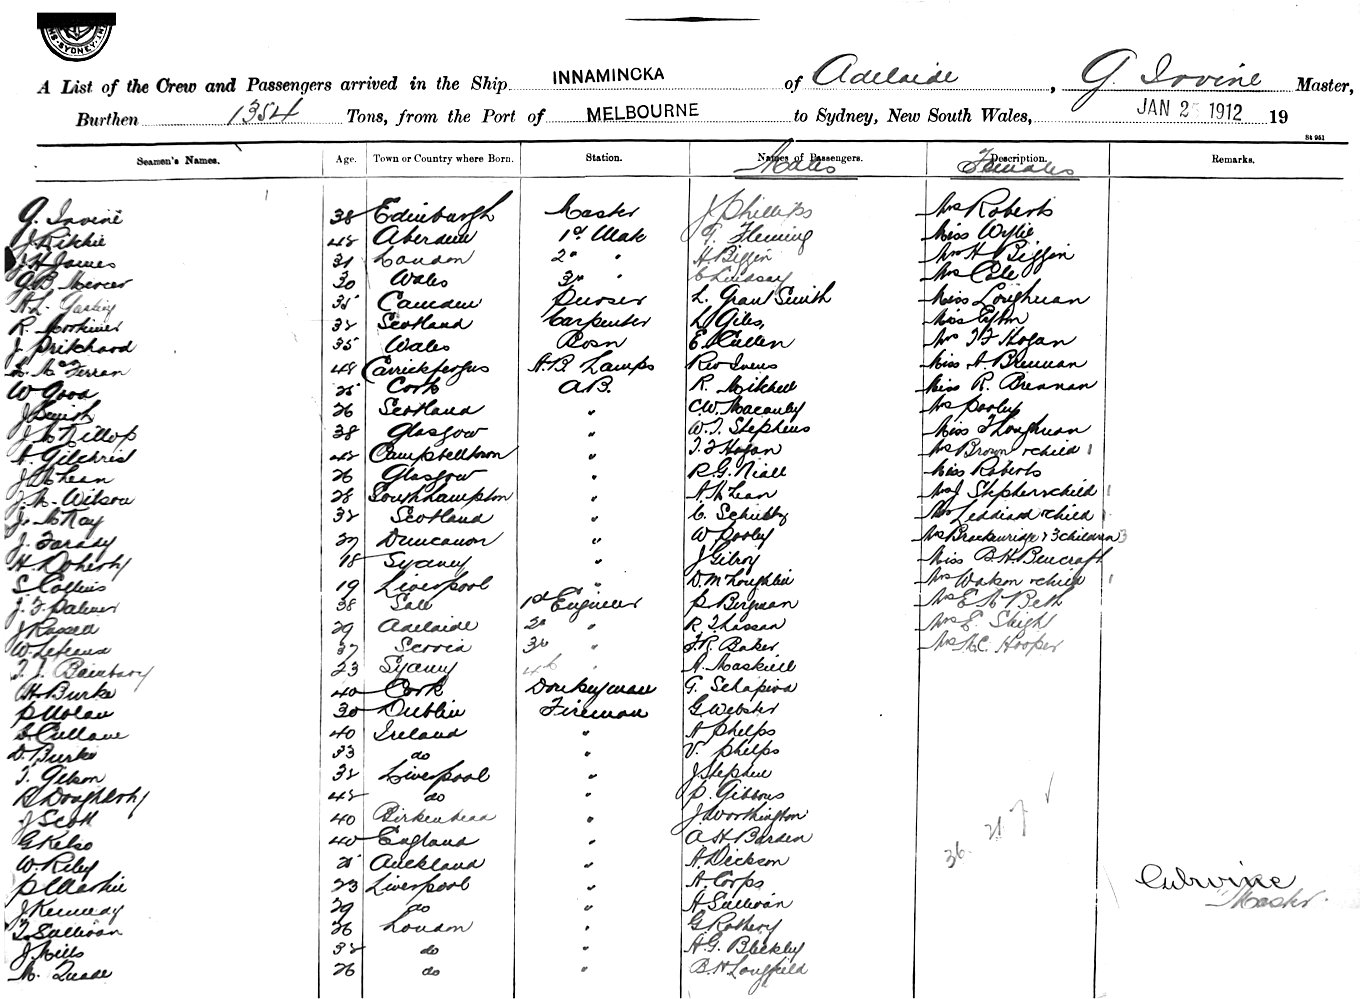 SYDNEY
A List of the Crew and Passengers arrived in the Ship INNAMINCKA of Adelaide, G. Irvine Master,
Burthen 1354 Tons, from the Port of MELBOURNE to Sydney, New South Wales, JAN 2 1912 19
St 951
Seamen's Names. Age. Town or Country where Born. Station. Names of Passengers. Description. Remarks.
Males Females
G. Irvine 38 Edinburgh Master J Phillips Mrs Roberts
J Ritchie 42 Aberdeen 1st Mate T. Fleming Miss Wylie
J. H James 31 London 2nd " H Biggin Mrs H Biggin
G. B. Mercer 30 Wales 3rd " C Lindsay Mrs Cole
H. L. 35 Camden Purser L. Grant Smith Miss Loughnan
R. Mortimer 32 Scotland Carpenter L Giles,
J. Pritchard 35 Wales Bosn E. Cullen Mrs T F Hogan
McFerran 48 Carrickfergus A.B Lamps Rev Ivens Miss A. Brennan
W Good 25 Cork A.B. R. Mitchell Miss R. Brennan
J Smith 26 Scotland " C. W. Macauley Mrs Pooley
J McKillop 38 Glasgow " W. T. Stephens Miss F Loughnan
A. Gilchrist 42 Campbelltown " T. F Hogan Mrs Brown & child 1
J McLean 26 Glasgow " R. G. Niall Miss Roberts
J. M. Wilson 28 Southhampton " A McLean Mrs J Stephens & child 1
J. McKay 32 Scotland " C. Mrs Leddiard & child 1
J. Farady 27 Duncanon " W Pooley Mrs Brackenridge & 3 children 3
H Doherty 18 Sydney " J Gilroy Miss B. H. Bencraft
S Collins 19 Liverpool " D. McLoughlin Mrs Watson & child 1
J. F. Palmer 38 Sale 1st Engineer P Bergman Mrs E A Beth
J Russell 29 Adelaide 2nd " R. T. Hassan Mrs E. Sleigh
W. 37 Scotia 3rd " F. R. Baker Mrs M C. Hooper
T. J. Bainbury 23 Sydney 4th " A. Maskiell
H Burke 40 Cork Donkeyman G. Schapira
P Nolan 30 Dublin Fireman G Webster
Cullane 40 Ireland " A Phelps
D. Burke 33 do " V. Phelps
T. Gibson 32 Liverpool " J Stephen
Dougherty 42 do " P. Gibbons
J Scott 40 Birkenhead " J. Worthington
G Kelso 40 England " A. H Barden
W. Riley 21 Auckland " A. Dickson
P 23 Liverpool " A. Corps
J Kennedy 29 do " H Sullivan
T. Sullivan 26 London " G Rothery
J. Mills 32 do " A. G. Bleckley
M. Quade 26 do " B. H Longfield
36. 21 7 √
G Irvine
Master.